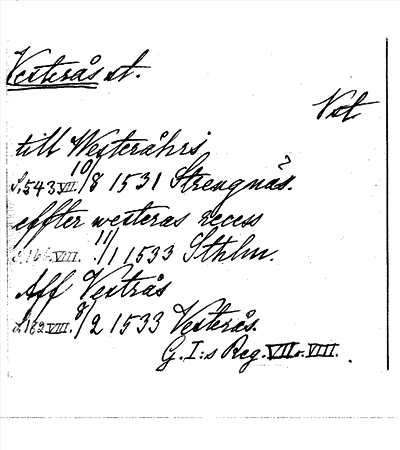 Vesterås st.
Vst
till Westeråhrs
s. 543 VII. 10/8 1531 Strengnäs. ?
effter westeras recess
s. 166 VIII. 11/1 1533 Sthlm.
Aff Vestrås
s. 182 VIII. 8/2 1533 Vesterås.
G. I:s Reg. VII o. VIII.